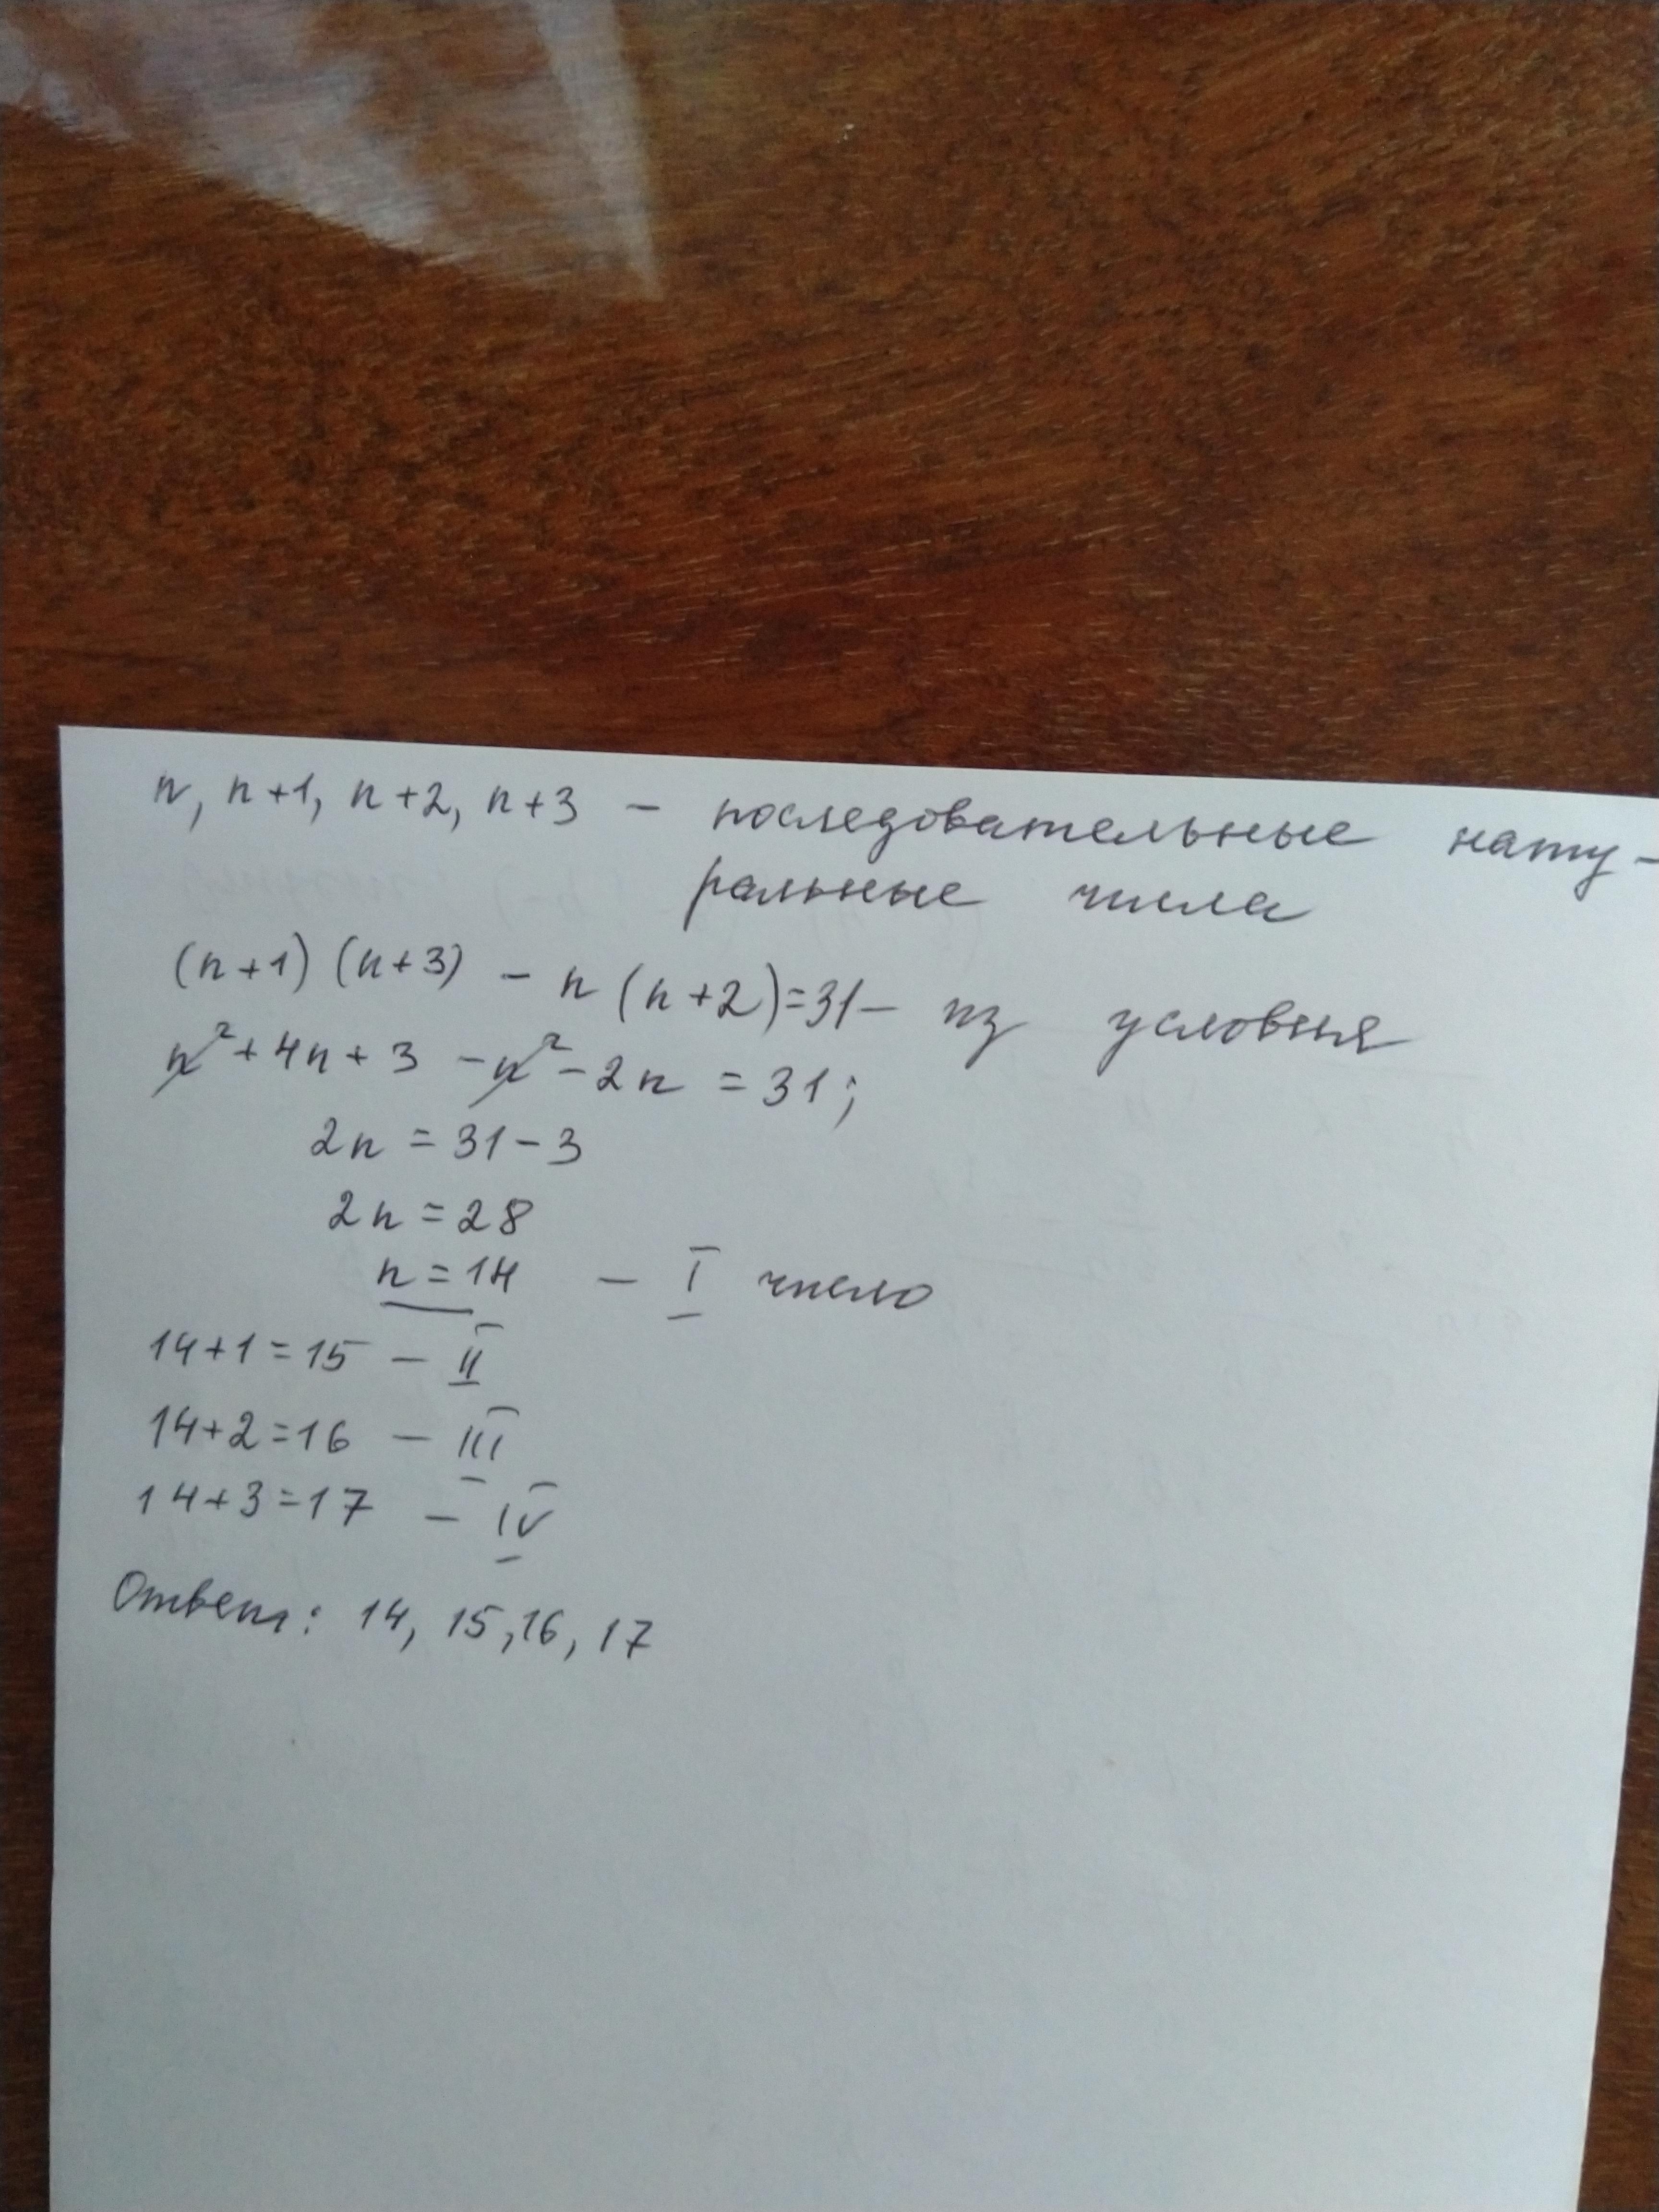 n, n+1, n+2, n+3 - последовательные нату-
ральные числа
(n+1)(n+3) - n(n+2)=31 - из условия
n²+4n+3 -n²-2n = 31;
2n = 31-3
2n = 28
n = 14 - I число
14+1=15 - II
14+2=16 - III
14+3=17 - IV
Ответ: 14, 15, 16, 17